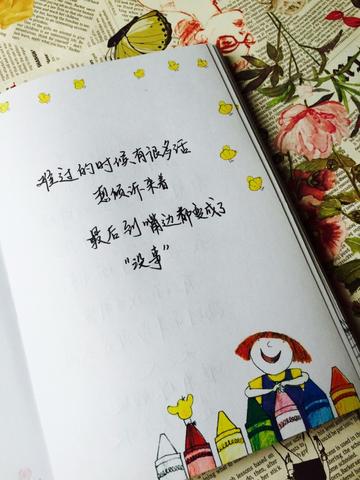 难过的时候有很多话
想倾诉来着
最后到嘴边都变成了
“没事”